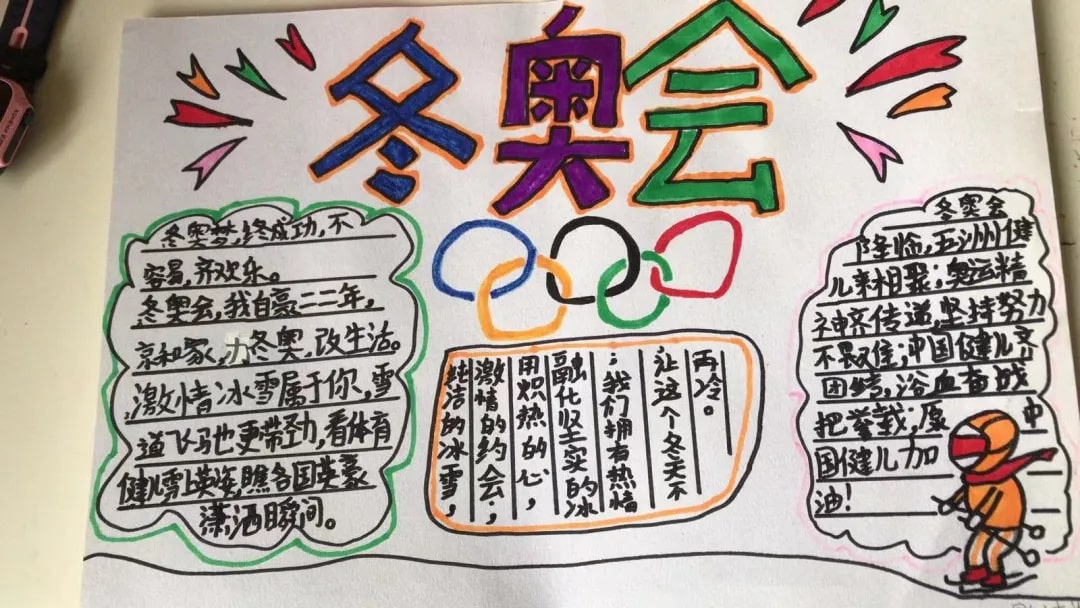 冬奥会
冬奥梦,终成功,不
容易,齐欢乐。
冬奥会,我自豪二二年,
京和家,冬奥,改生活。
激情冰雪属于你,雪
道飞马也更带劲,看体育
健儿雪上英姿,瞧各国英豪
潇洒瞬间。
纯洁的冰雪,
激情的约会;
用炽热的心,
融化坚实的冰
;我们拥有热情
让这个冬天不
再冷。
冬奥会
隆临,五洲健
儿来相聚;奥运精
神齐传递,坚持努力
不畏难;中国健儿齐
团结,浴血奋战
把誉载;愿中
国健儿加
油!